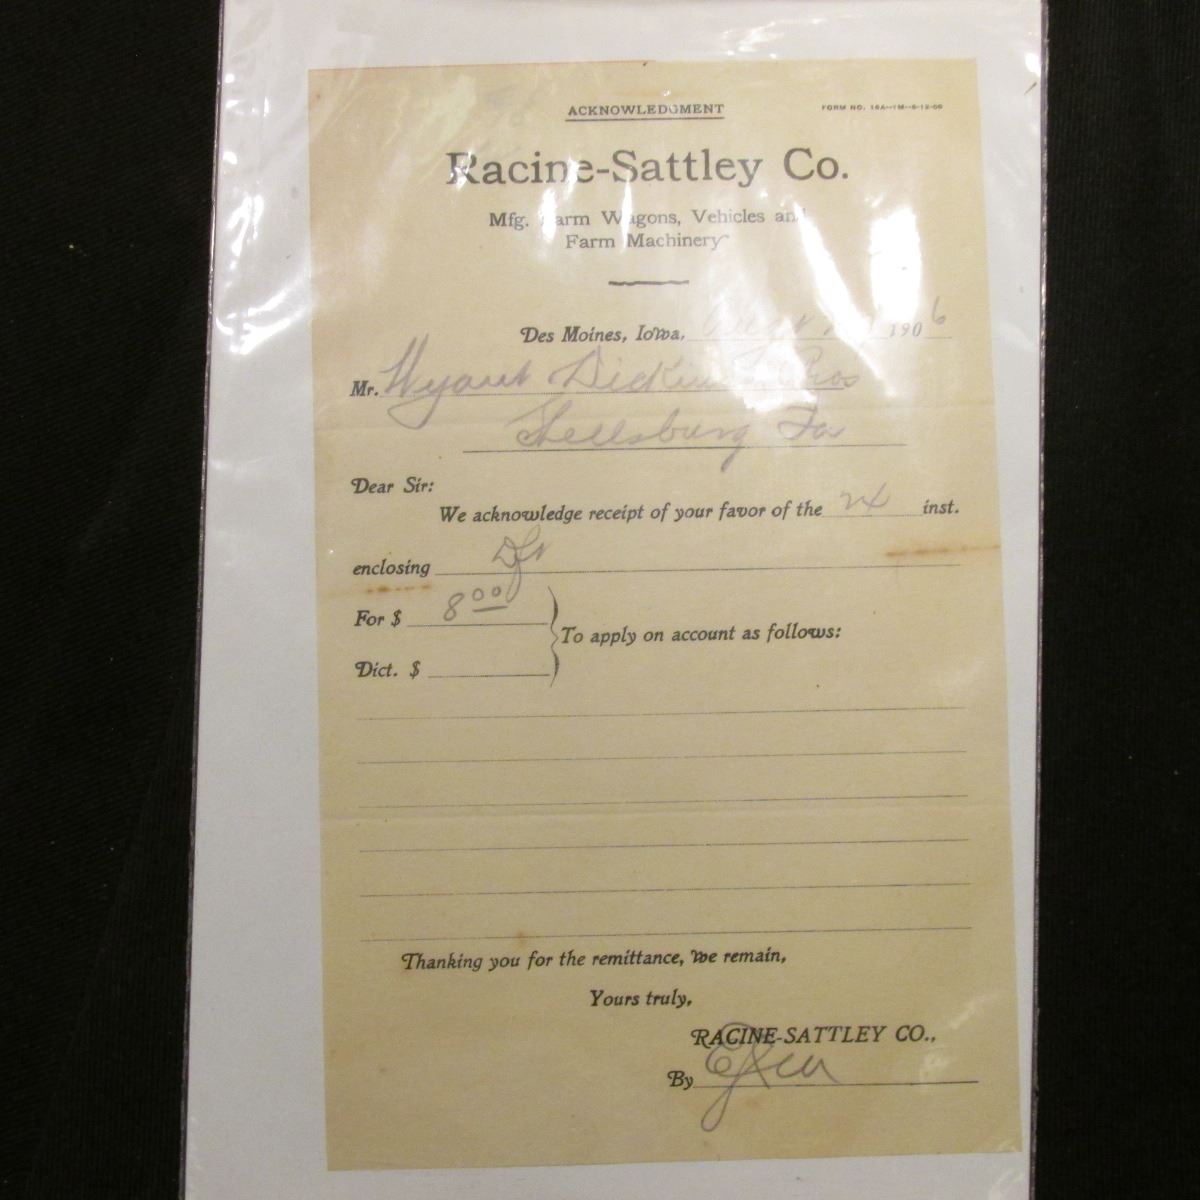 ACKNOWLEDGMENT
FORM NO. 16A--1M--6-12-06
Racine-Sattley Co.
Mfg. Farm Wagons, Vehicles and
Farm Machinery
Des Moines, Iowa, 1906
Mr. Wyant Dickinson Bros
Shellsburg Ia
Dear Sir:
We acknowledge receipt of your favor of the inst.
enclosing Dft
For $ 8 00
To apply on account as follows:
Dict. $
Thanking you for the remittance, we remain,
Yours truly,
RACINE-SATTLEY CO.,
By